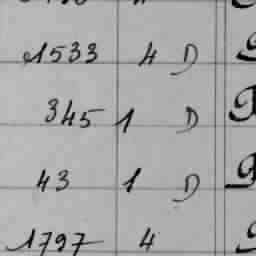 1533 4 D
345 1 D
43 1 D
1797 4